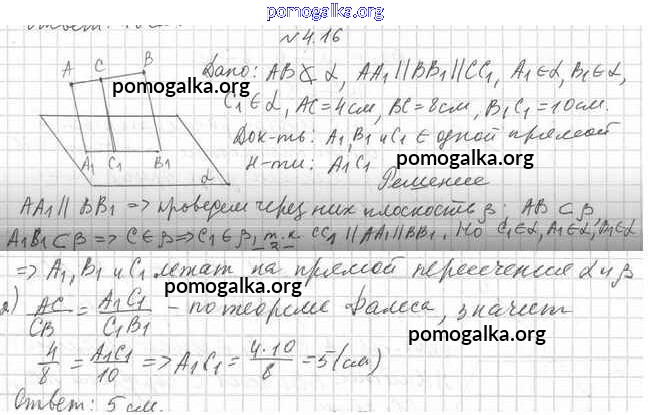 pomogalka.org
Ответ:
№4.16
A C B
pomogalka.org
A₁ C₁ B₁
α
Дано: AB ⊄ α, AA₁ || BB₁ || CC₁, A₁∈α, B₁∈α,
C₁∈α, AC=4см, BC=8см, B₁C₁=10см.
Док-ть: A₁, B₁ и C₁ ∈ одной прямой
Н-ти: A₁C₁
pomogalka.org
Решение
AA₁ || BB₁ => проведем через них плоскость β; AB ⊂ β,
A₁B₁ ⊂ β => C∈β => C₁∈β, т.к. CC₁ || AA₁ || BB₁. Но C₁∈α, A₁∈α, B₁∈α
=> A₁, B₁ и C₁ лежат на прямой пересечения α и β
pomogalka.org
2) AC/CB = A₁C₁/C₁B₁ - по теореме Фалеса, значит
pomogalka.org
4/8 = A₁C₁/10 => A₁C₁ = 4·10/8 = 5(см)
Ответ: 5 см.